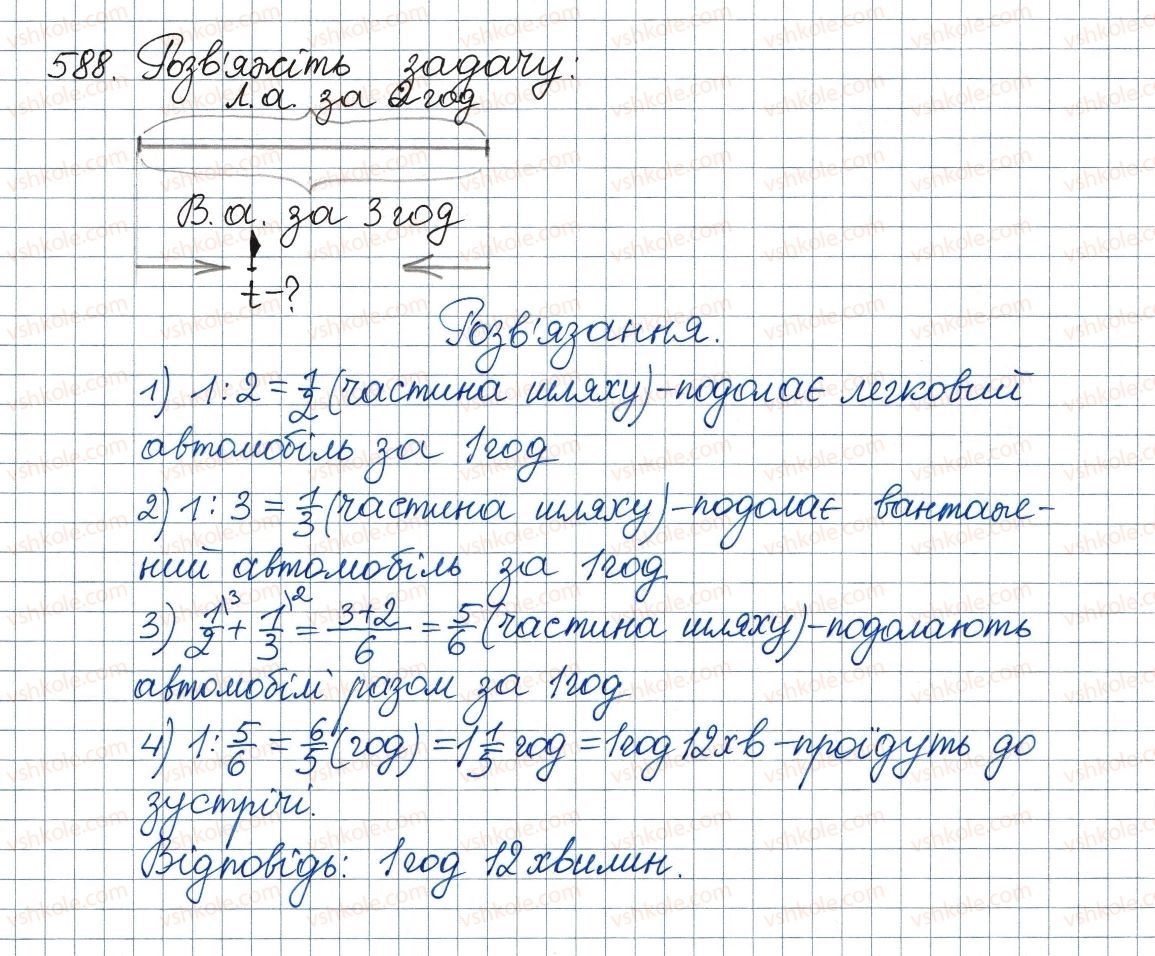 588. Розв'яжіть задачу:
л.а. за 2 год
В.а. за 3 год
t-?
Розв'язання.
1) 1:2 = 1/2 (частина шляху)-подолає легковий
автомобіль за 1 год
2) 1:3 = 1/3 (частина шляху)-подолає вантаже-
ний автомобіль за 1 год
3) 1/2\3 + 1/3\2 = 3+2/6 = 5/6 (частина шляху)-подолають
автомобілі разом за 1 год
4) 1: 5/6 = 6/5 (год) = 1 1/5 год = 1 год 12 хв -проїдуть до
зустрічі.
Відповідь: 1 год 12 хвилин.